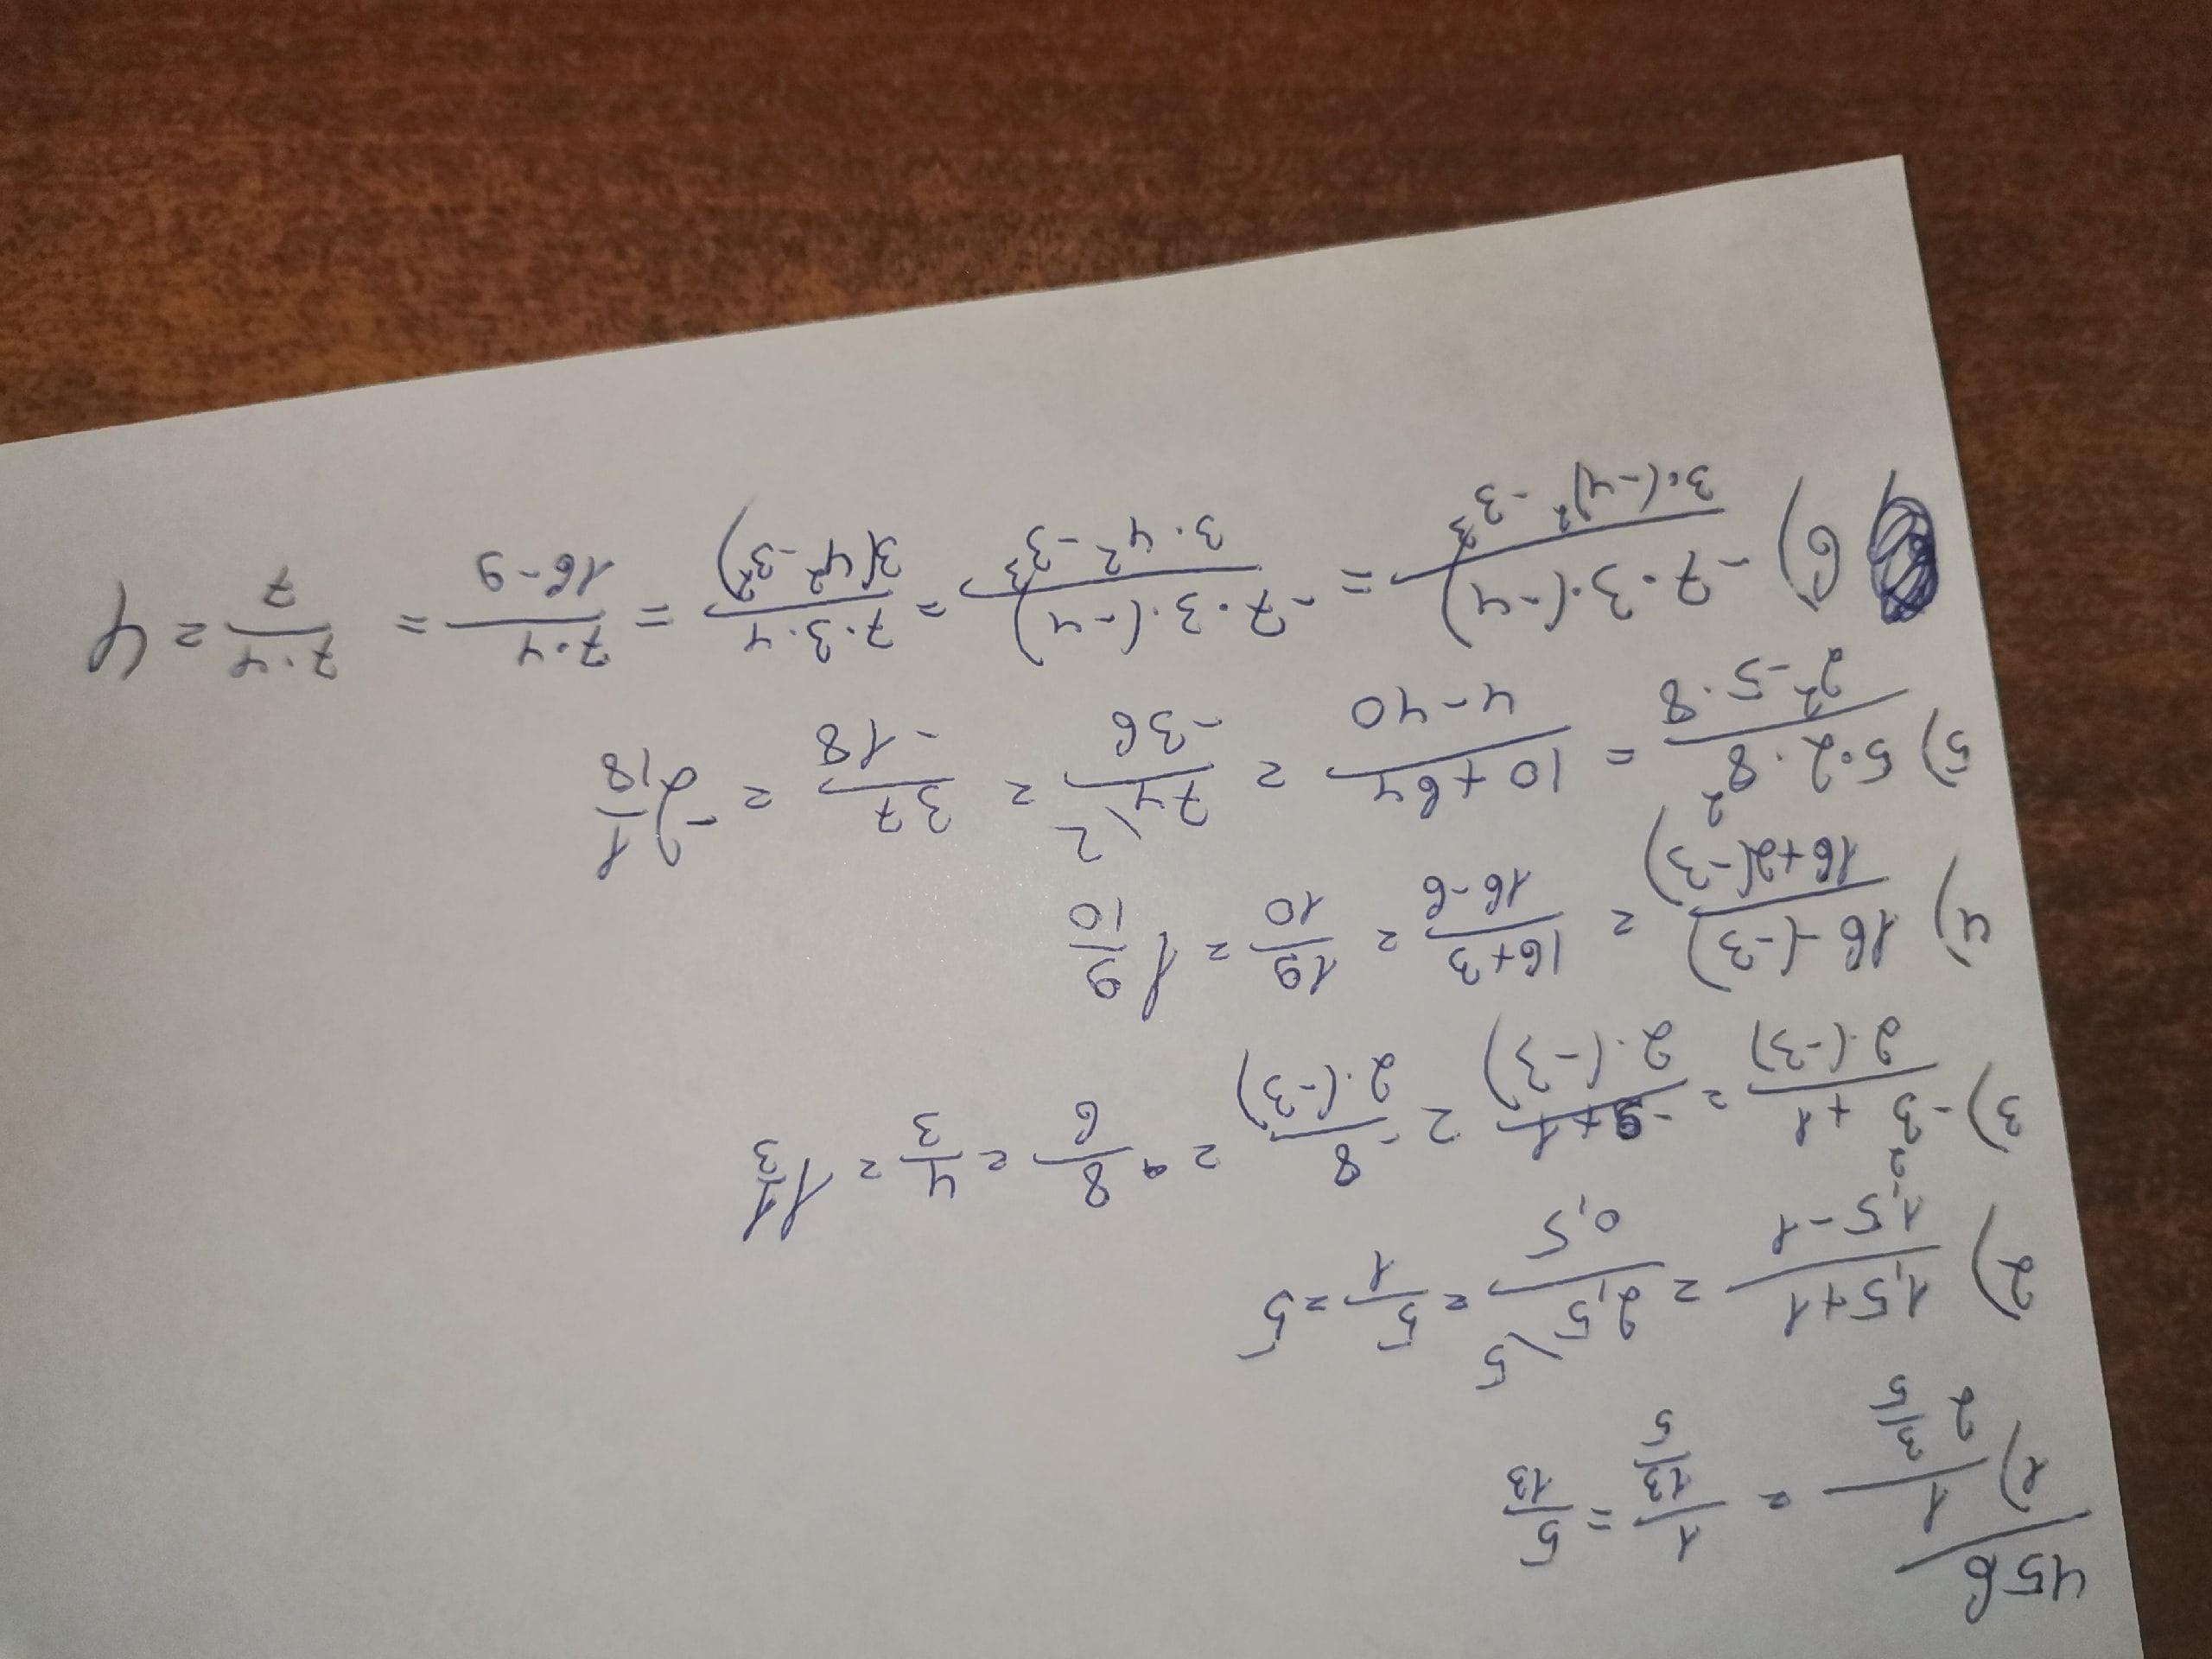 456
1) 1/(2 3/5) = 1/(13/5) = 5/13
2) (1,5+1)/(1,5-1) = 2,5/0,5 \5 = 5/1 = 5
3) (-3²+1)/(2·(-3)) = (-9+1)/(2·(-3)) = -8/(2·(-3)) = 8/6 = 4/3 = 1 1/3
4) (16-(-3))/(16+2(-3)) = (16+3)/(16-6) = 19/10 = 1 9/10
5) (5·2·8²)/(2²-5·8) = (10+64)/(4-40) = 74\2/-36 = 37/-18 = -2 1/18
6) (-7·3·(-4))/(3·(-4)²-3³) = (-7·3·(-4))/(3·4²-3³) = (7·3·4)/(3(4²-3²)) = (7·4)/(16-9) = (7·4)/7 = 4